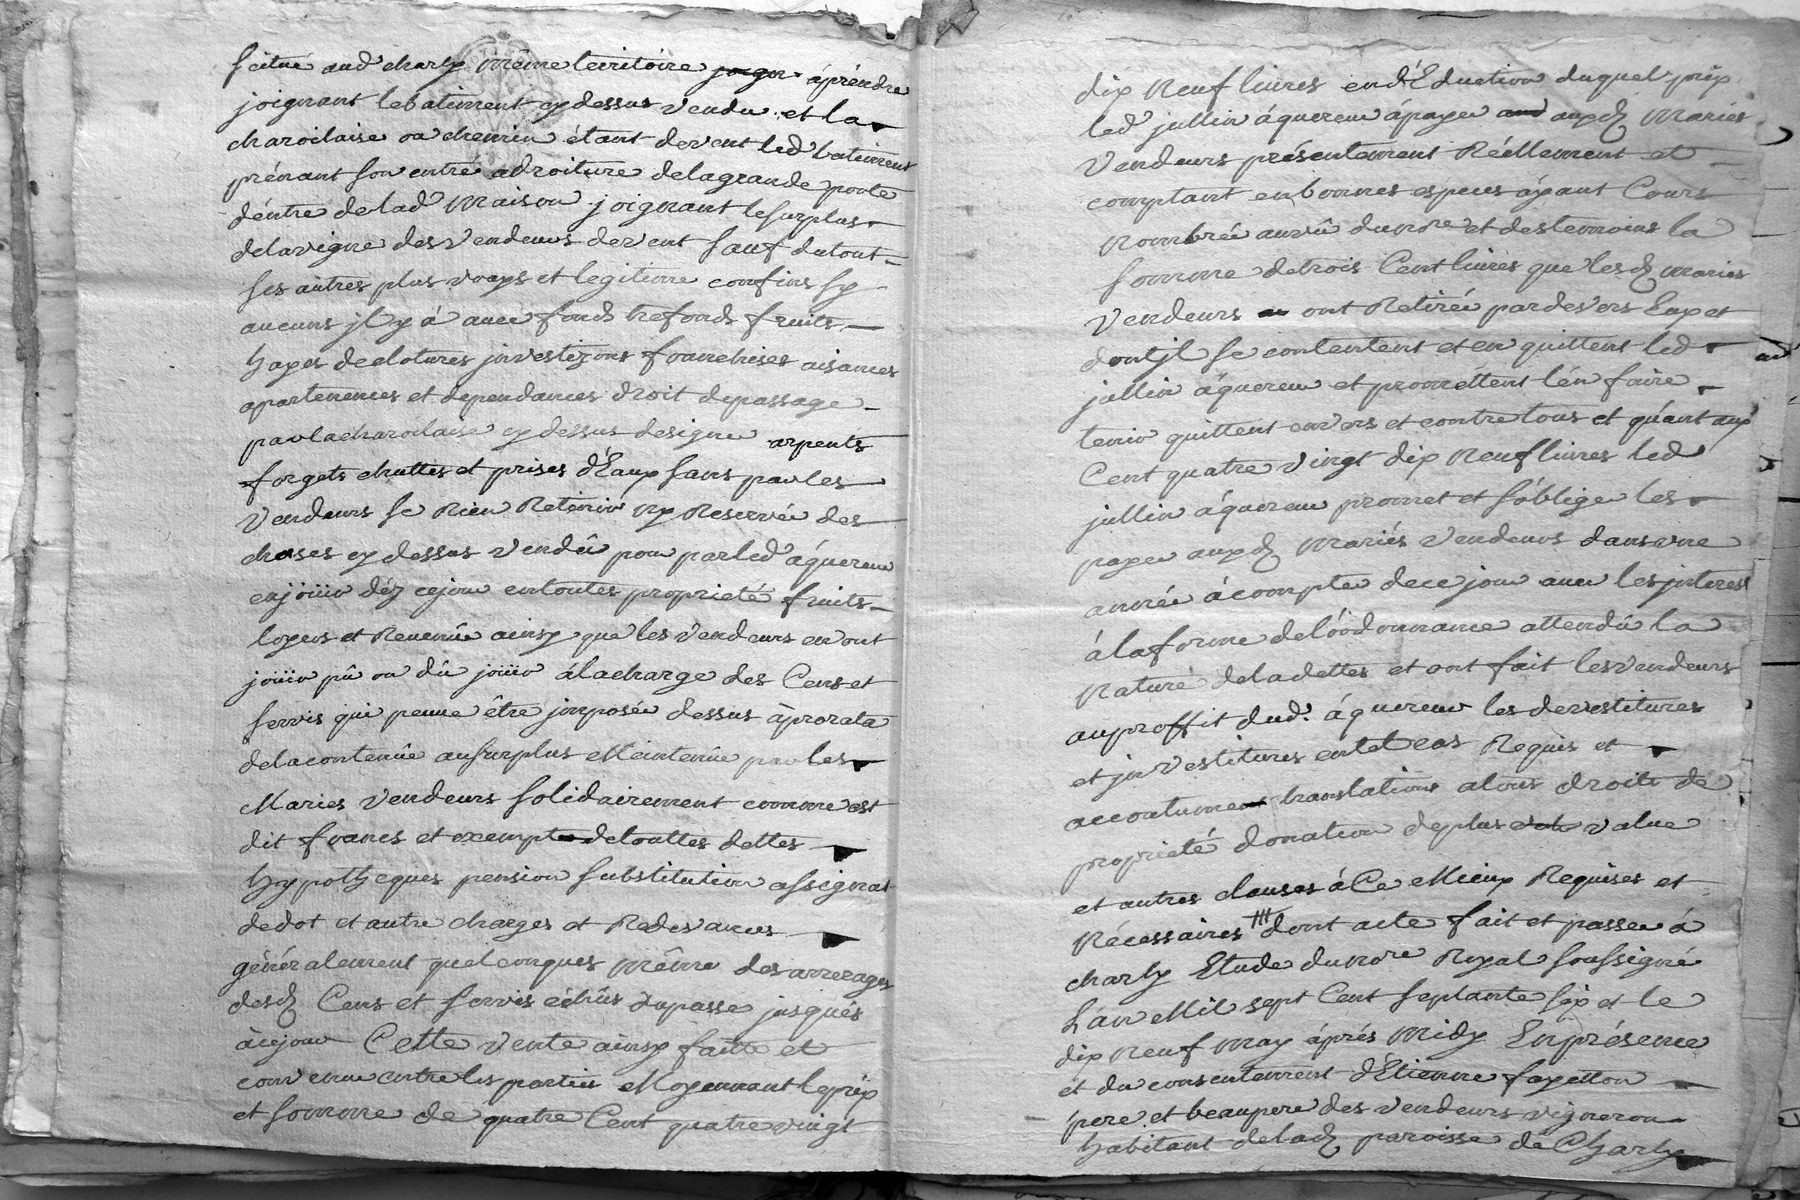 scitué aud charly même territoire joign áprendre
joignant le batiment cy dessus vendu et la
charoilaise ou chemin étant devent led batiment
prénant son entré adroiture delagrande porte
déntre de lad maison joignant le surplus
delavigne des vendeurs devent sauf dutout
ses autres plus vrays et legitime confins sy
aucuns jl y á avec fonds trefonds fruits
hayes declotures jnvestizons franchises aisances
apartenences et dependances droit depassage
par lacharoilaise cy dessus designe arpents
forgets chuttes et prises d'Eaux sans par les
Vendeurs se Rien Retenir ny Reservée des
choses cy dessus vendû pour par led áquereur
enjoüir déz cejour entoutes proprieté fruits
loyers et Revenüe ainsy que les vendeurs en ont
joüir pû ou dû joüir álacharge des Cens et
servis qui peuue être jmposée dessus àprorata
delacontenüe ausurplus Meintenüe par les
Maries vendeurs solidairement comme est
dit francs et exempt detouttes dettes
hypotheques pension substitution assignat
dedot et autre charges et Redevances
généralement quelconques même des arrerages
desd Cens et servis échûs dupasse jusqués
àcejour Cette vente ainsy faitte et
convenue entre les parties Moyennant le prix
et somme de quatre Cent quatre vingt
dix Neuf livres en déduction duquel prix
led jullin áquereur ápayer aud auxd Mariés
Vendeurs présentement Réellement et
comptant en bonnes especes áyant Cours
Nombrée auvû dunore et destemoins la
somme detrois Cent livres que lesd maries
Vendeurs ont Retirée pardevers Eux et
dont jl se contentent et en quittent led
jullin áquereur et prométtent lén faire
tenir quittent envers et contre tous et quánt aux
Cent quatre vingt dix Neuf livres led
jullin áquereur promet et s'oblige les
payer auxd Mariés vendeurs dans une
année ácompter dece jour avec les jnterest
á laforme delórdonnance attendû la
Nature deladettes et ont fait les vendeurs
auproffit dud. áquereur les devestitures
et jnvestitures entel cas Requis et
accoutume translations atous droits de
proprieté donation deplus value
et autres clauses áCe Mieux Requises et
Nécessaires dont acte fait et passee á
charly Etude dunore Royal soussigné
L'an Mil sept Cent septante six et le
dix Neuf may áprés Midy Enprésence
et du consentement d'Etienne fayetton
pere et beaupere des vendeurs vigneron
habitant delad paroisse de Charly